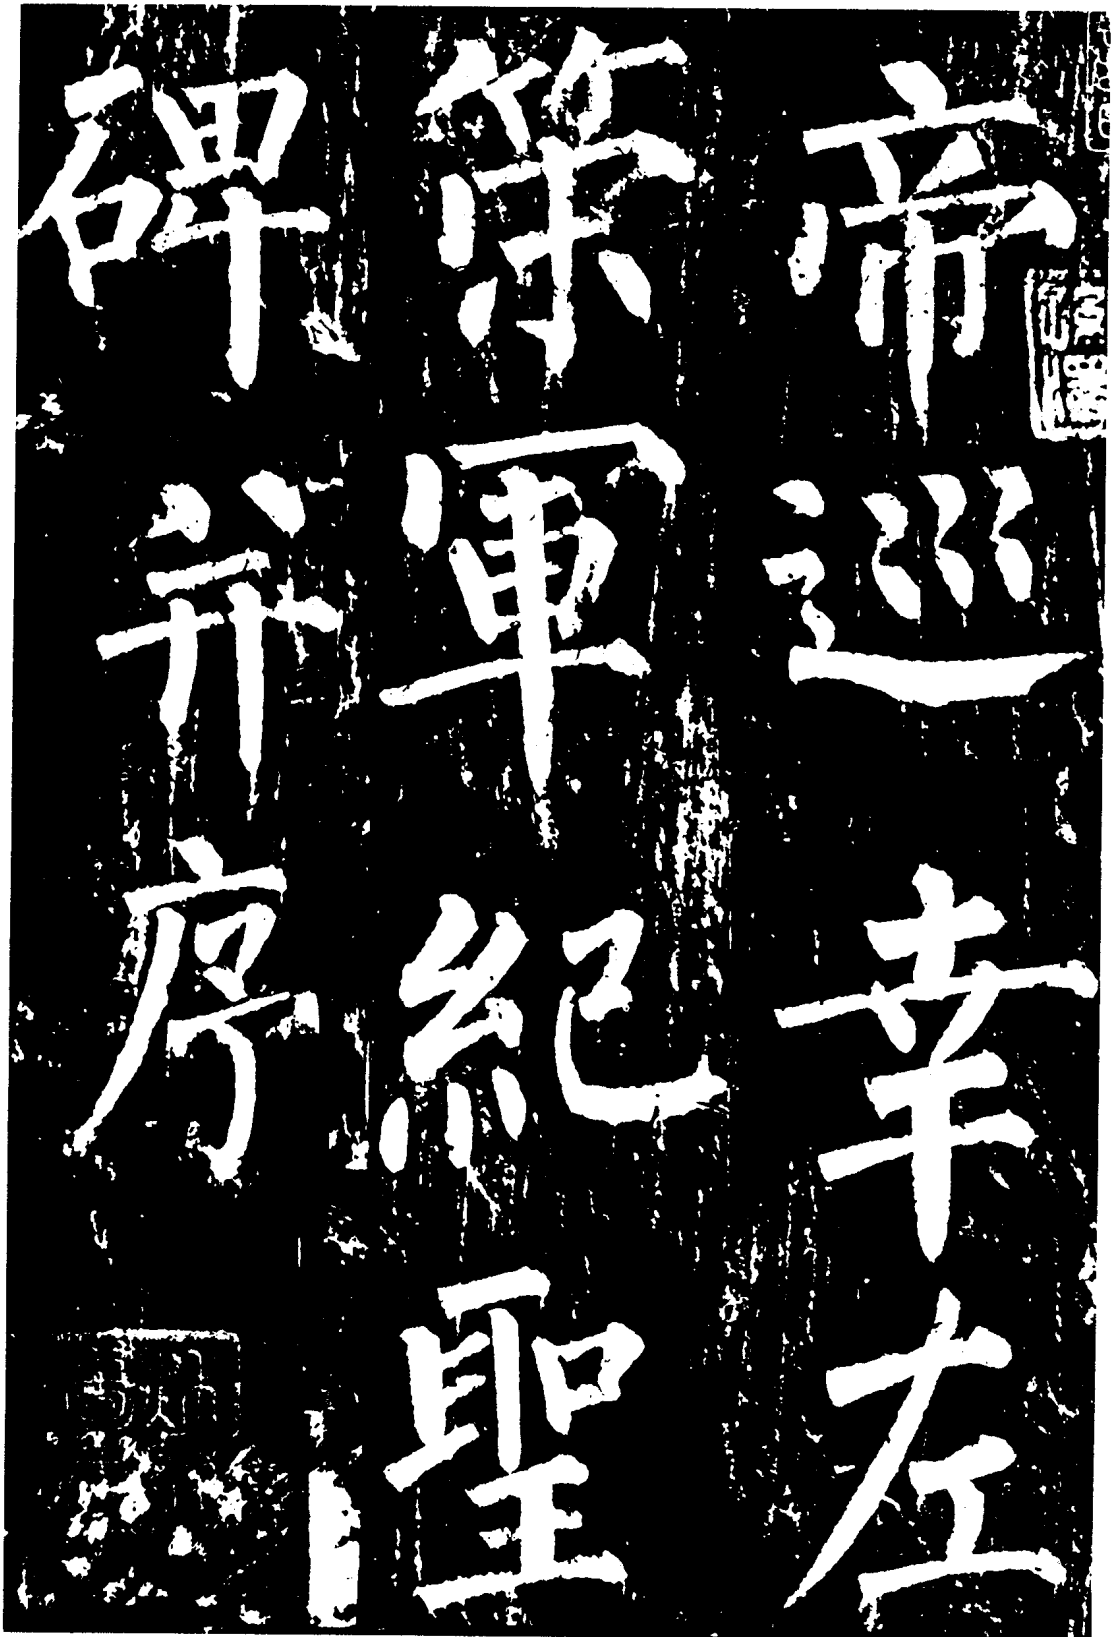 帝巡幸左
策軍紀聖
碑并序